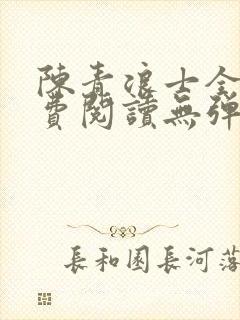 陳青浪士全
費閱讀無彈
長和園長河落